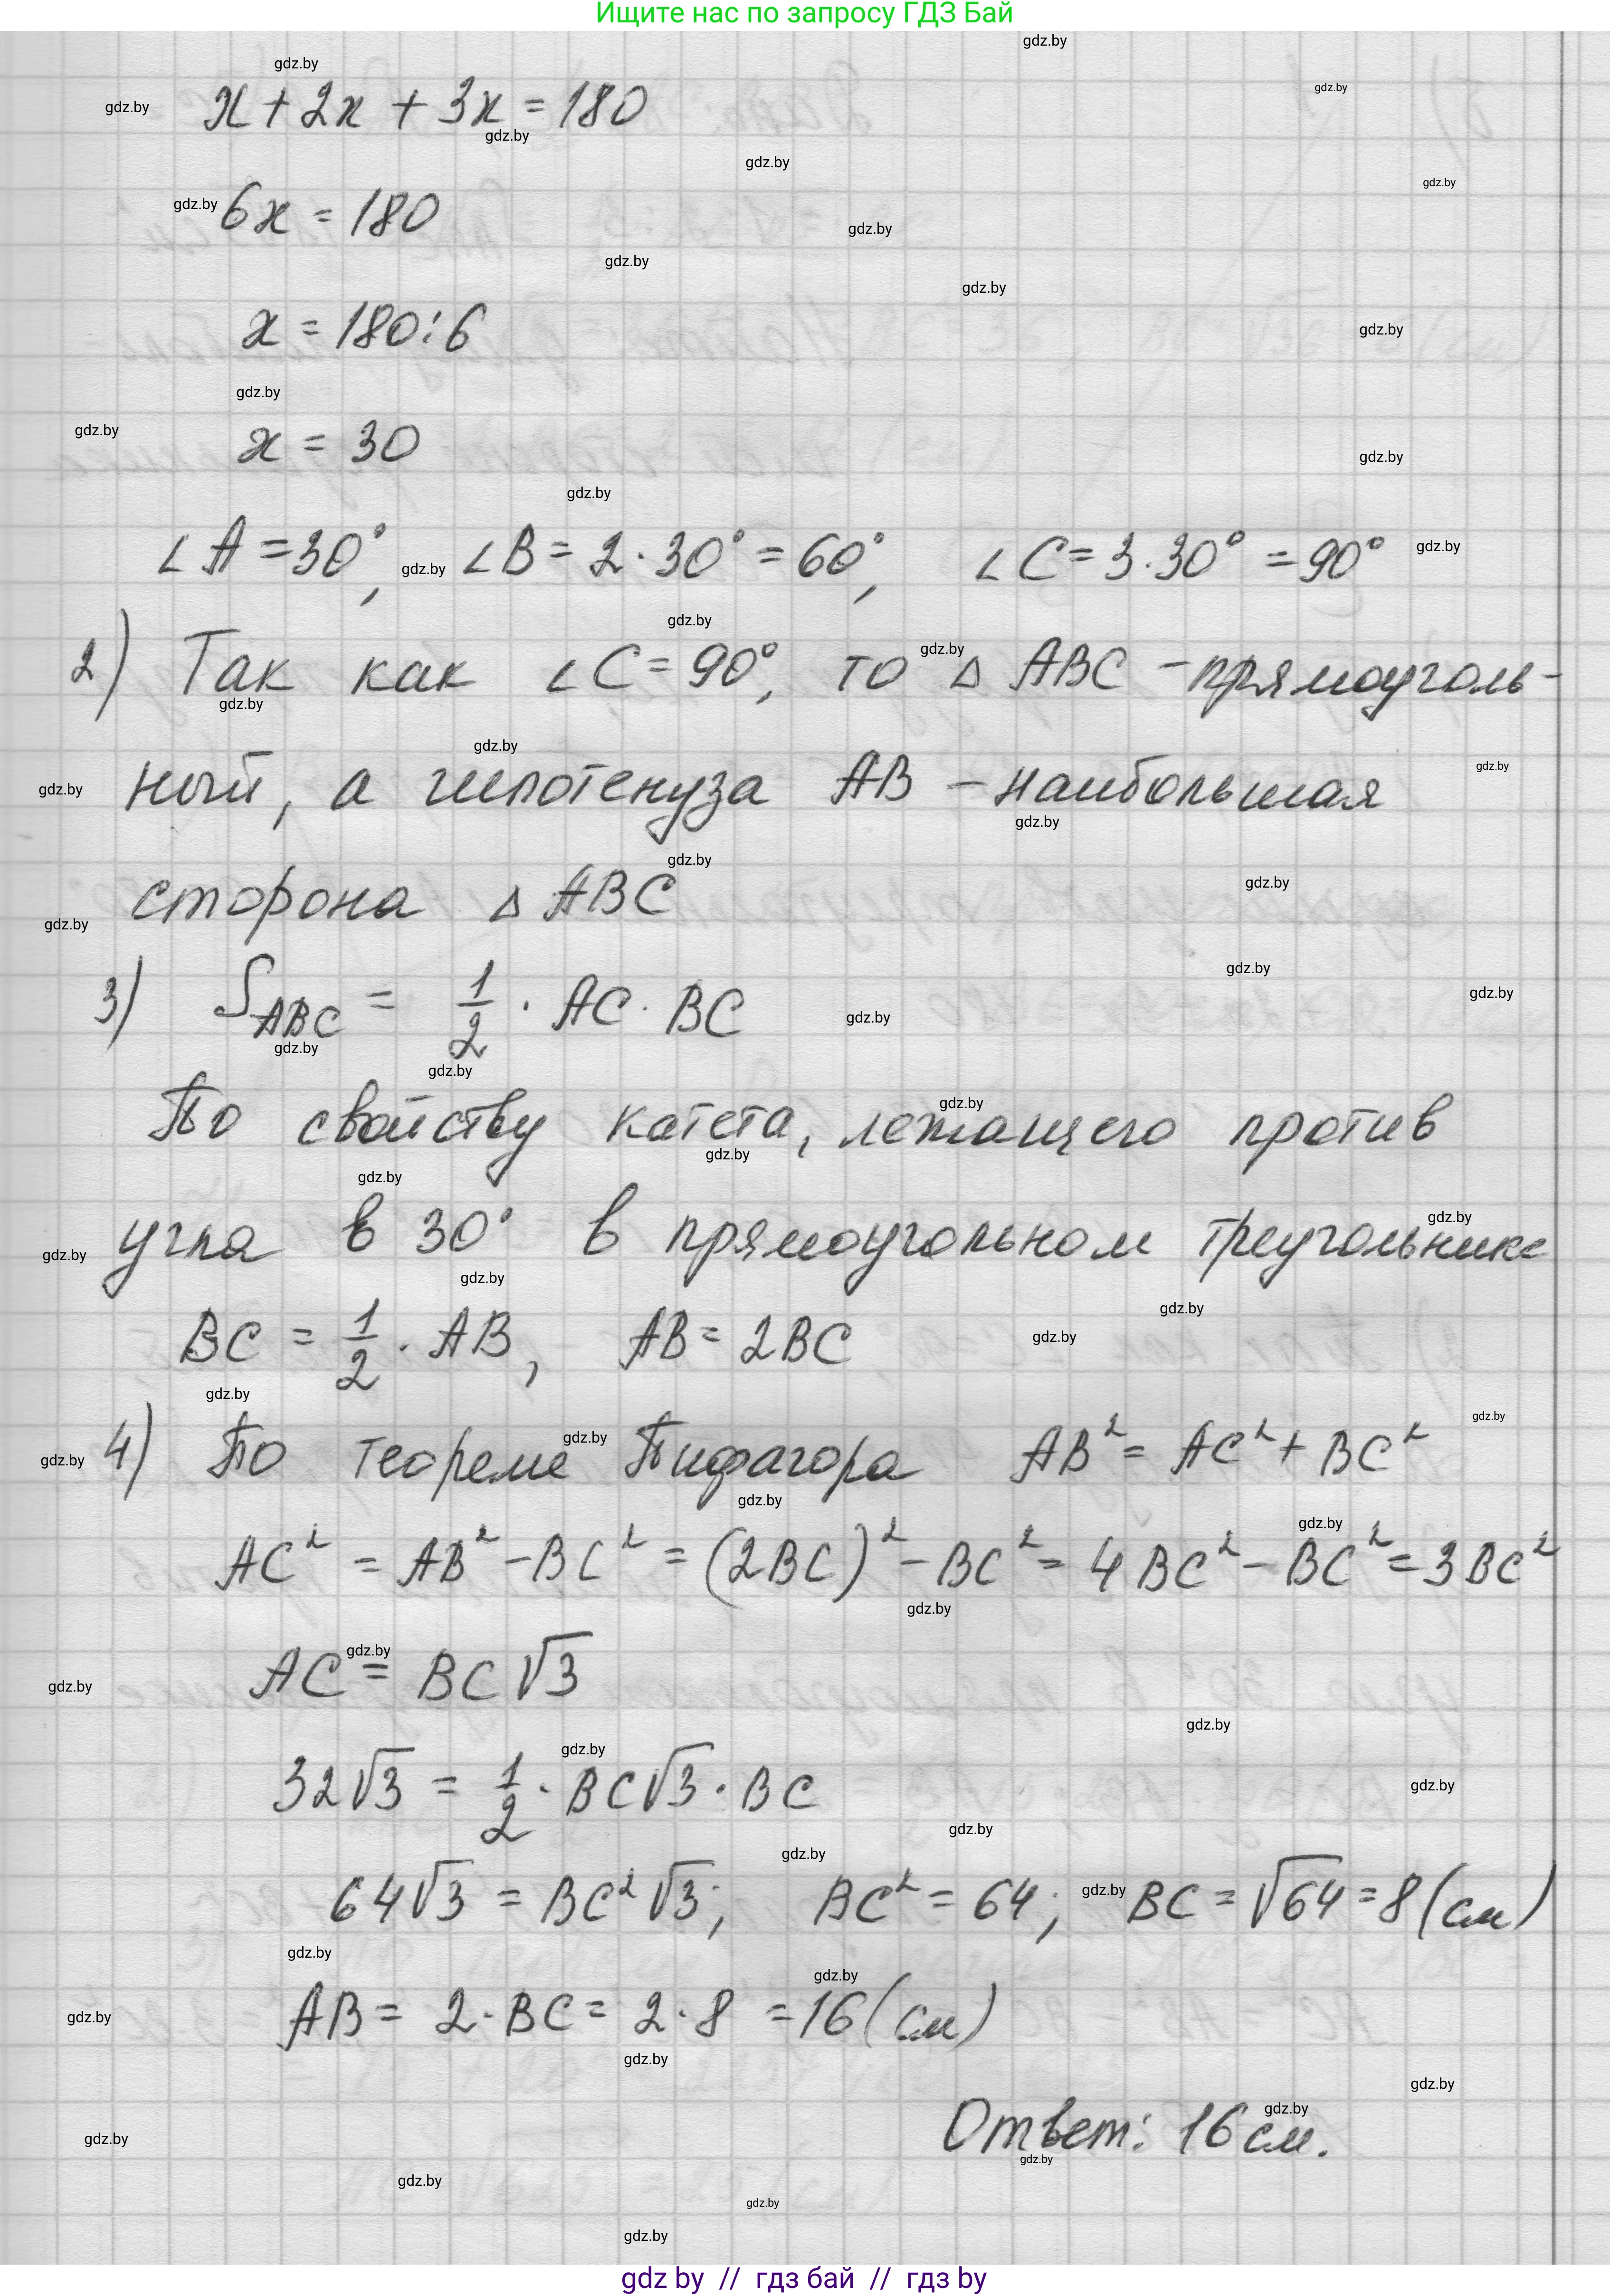 Ищите нас по запросу ГДЗ Бай
x + 2x + 3x = 180
6x = 180
x = 180 : 6
x = 30
∠A = 30°, ∠B = 2 · 30° = 60°, ∠C = 3 · 30° = 90°
2) Так как ∠C = 90°, то △ ABC - прямоуголь-
ный, а гипотенуза AB - наибольшая
сторона △ ABC
3) S_ABC = 1/2 · AC · BC
По свойству катета, лежащего против
угла в 30° в прямоугольном треугольнике
BC = 1/2 · AB, AB = 2BC
4) По теореме Пифагора AB² = AC² + BC²
AC² = AB² - BC² = (2BC)² - BC² = 4BC² - BC² = 3BC²
AC = BC√3
32√3 = 1/2 · BC√3 · BC
64√3 = BC²√3; BC² = 64; BC = √64 = 8 (см)
AB = 2 · BC = 2 · 8 = 16 (см)
Ответ: 16 см.
gdz by // гдз бай // гдз by